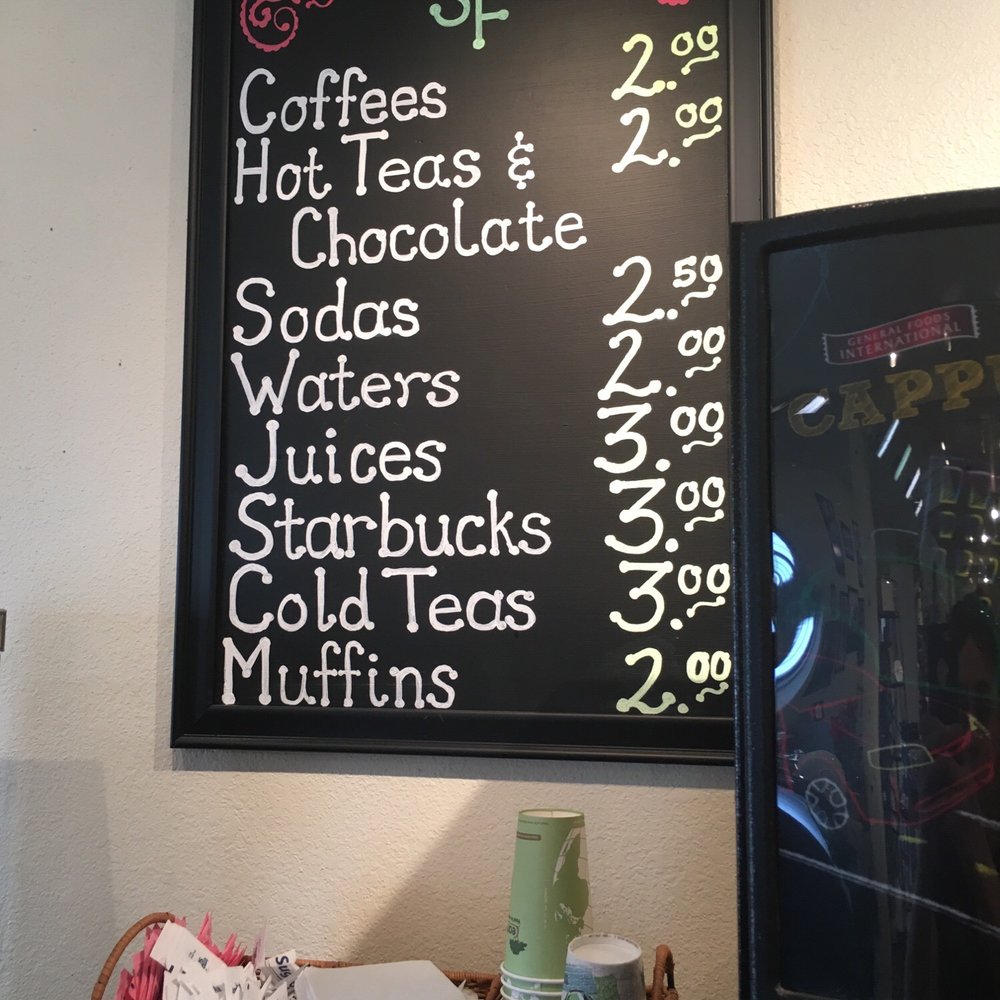 Coffees 2.00
Hot Teas & 2.00
Chocolate
Sodas 2.50
Waters 2.00
Juices 3.00
Starbucks 3.00
Cold Teas 3.00
Muffins 2.00
GENERAL FOODS
INTERNATIONAL
CAPP